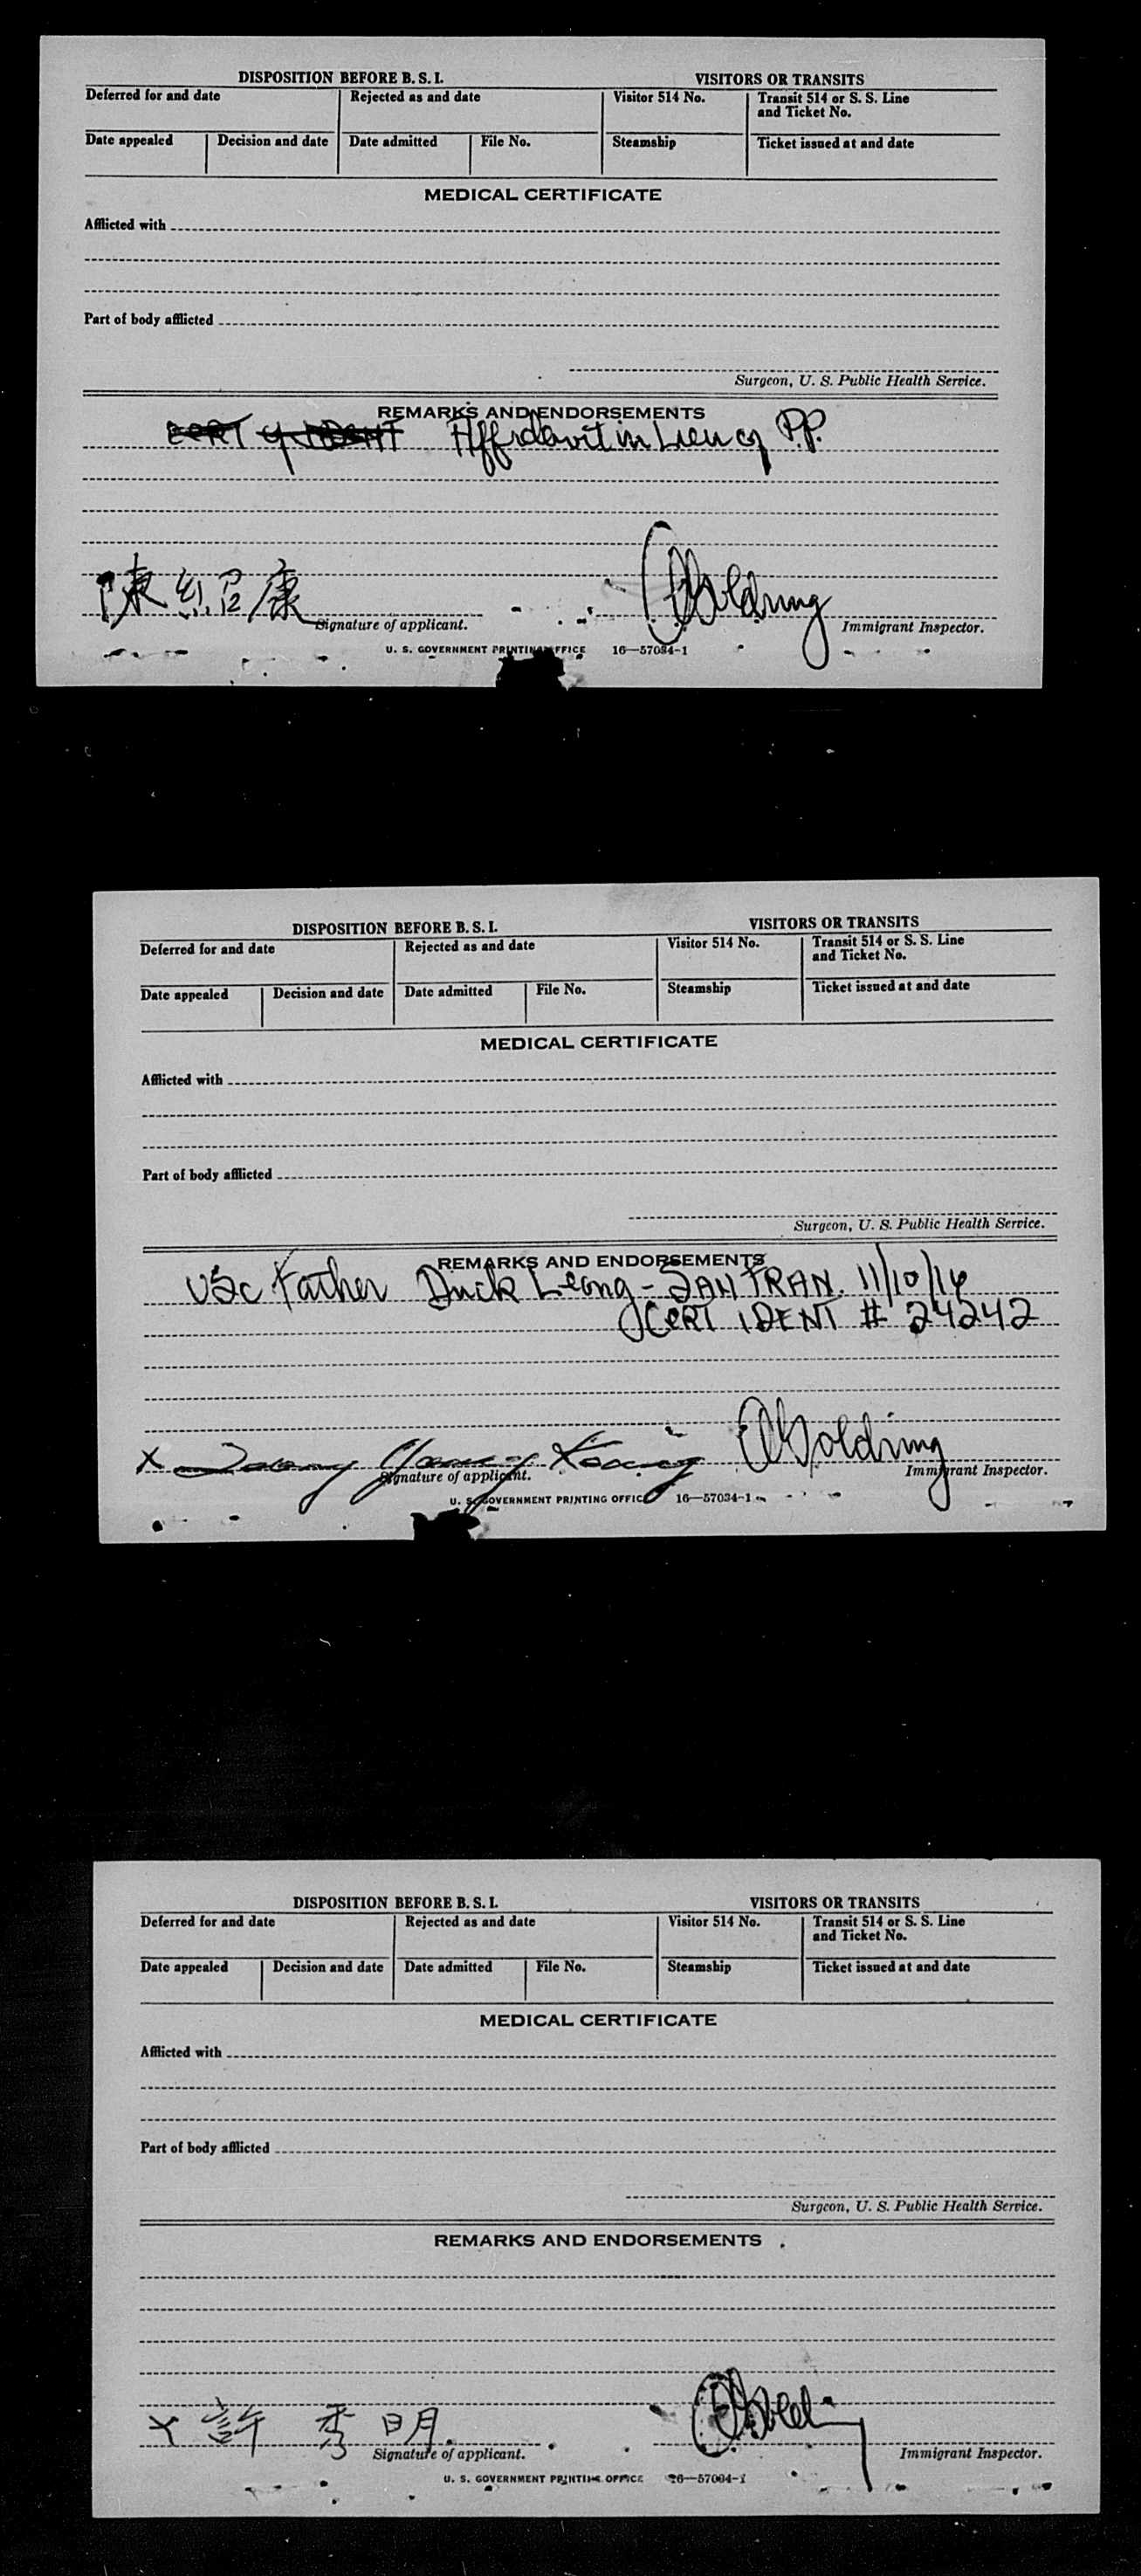 DISPOSITION BEFORE B. S. I. VISITORS OR TRANSITS
Deferred for and date Rejected as and date Visitor 514 No. Transit 514 or S. S. Line
and Ticket No.
Date appealed Decision and date Date admitted File No. Steamship Ticket issued at and date
MEDICAL CERTIFICATE
Afflicted with
Part of body afflicted
Surgeon, U. S. Public Health Service.
REMARKS AND ENDORSEMENTS
CERT of IDENT Affidavit in Lieu of P.P.
陳紹康
Signature of applicant. Immigrant Inspector.
U. S. GOVERNMENT PRINTING OFFICE 16—57034-1
DISPOSITION BEFORE B. S. I. VISITORS OR TRANSITS
Deferred for and date Rejected as and date Visitor 514 No. Transit 514 or S. S. Line
and Ticket No.
Date appealed Decision and date Date admitted File No. Steamship Ticket issued at and date
MEDICAL CERTIFICATE
Afflicted with
Part of body afflicted
Surgeon, U. S. Public Health Service.
REMARKS AND ENDORSEMENTS
USC Father Duck Leong - SAN FRAN. 11/10/14
CERT IDENT # 24242
X Goldring
Signature of applicant. Immigrant Inspector.
U. S. GOVERNMENT PRINTING OFFICE 16—57034-1
DISPOSITION BEFORE B. S. I. VISITORS OR TRANSITS
Deferred for and date Rejected as and date Visitor 514 No. Transit 514 or S. S. Line
and Ticket No.
Date appealed Decision and date Date admitted File No. Steamship Ticket issued at and date
MEDICAL CERTIFICATE
Afflicted with
Part of body afflicted
Surgeon, U. S. Public Health Service.
REMARKS AND ENDORSEMENTS
X 許秀明
Signature of applicant. Immigrant Inspector.
U. S. GOVERNMENT PRINTING OFFICE 16—57034-1